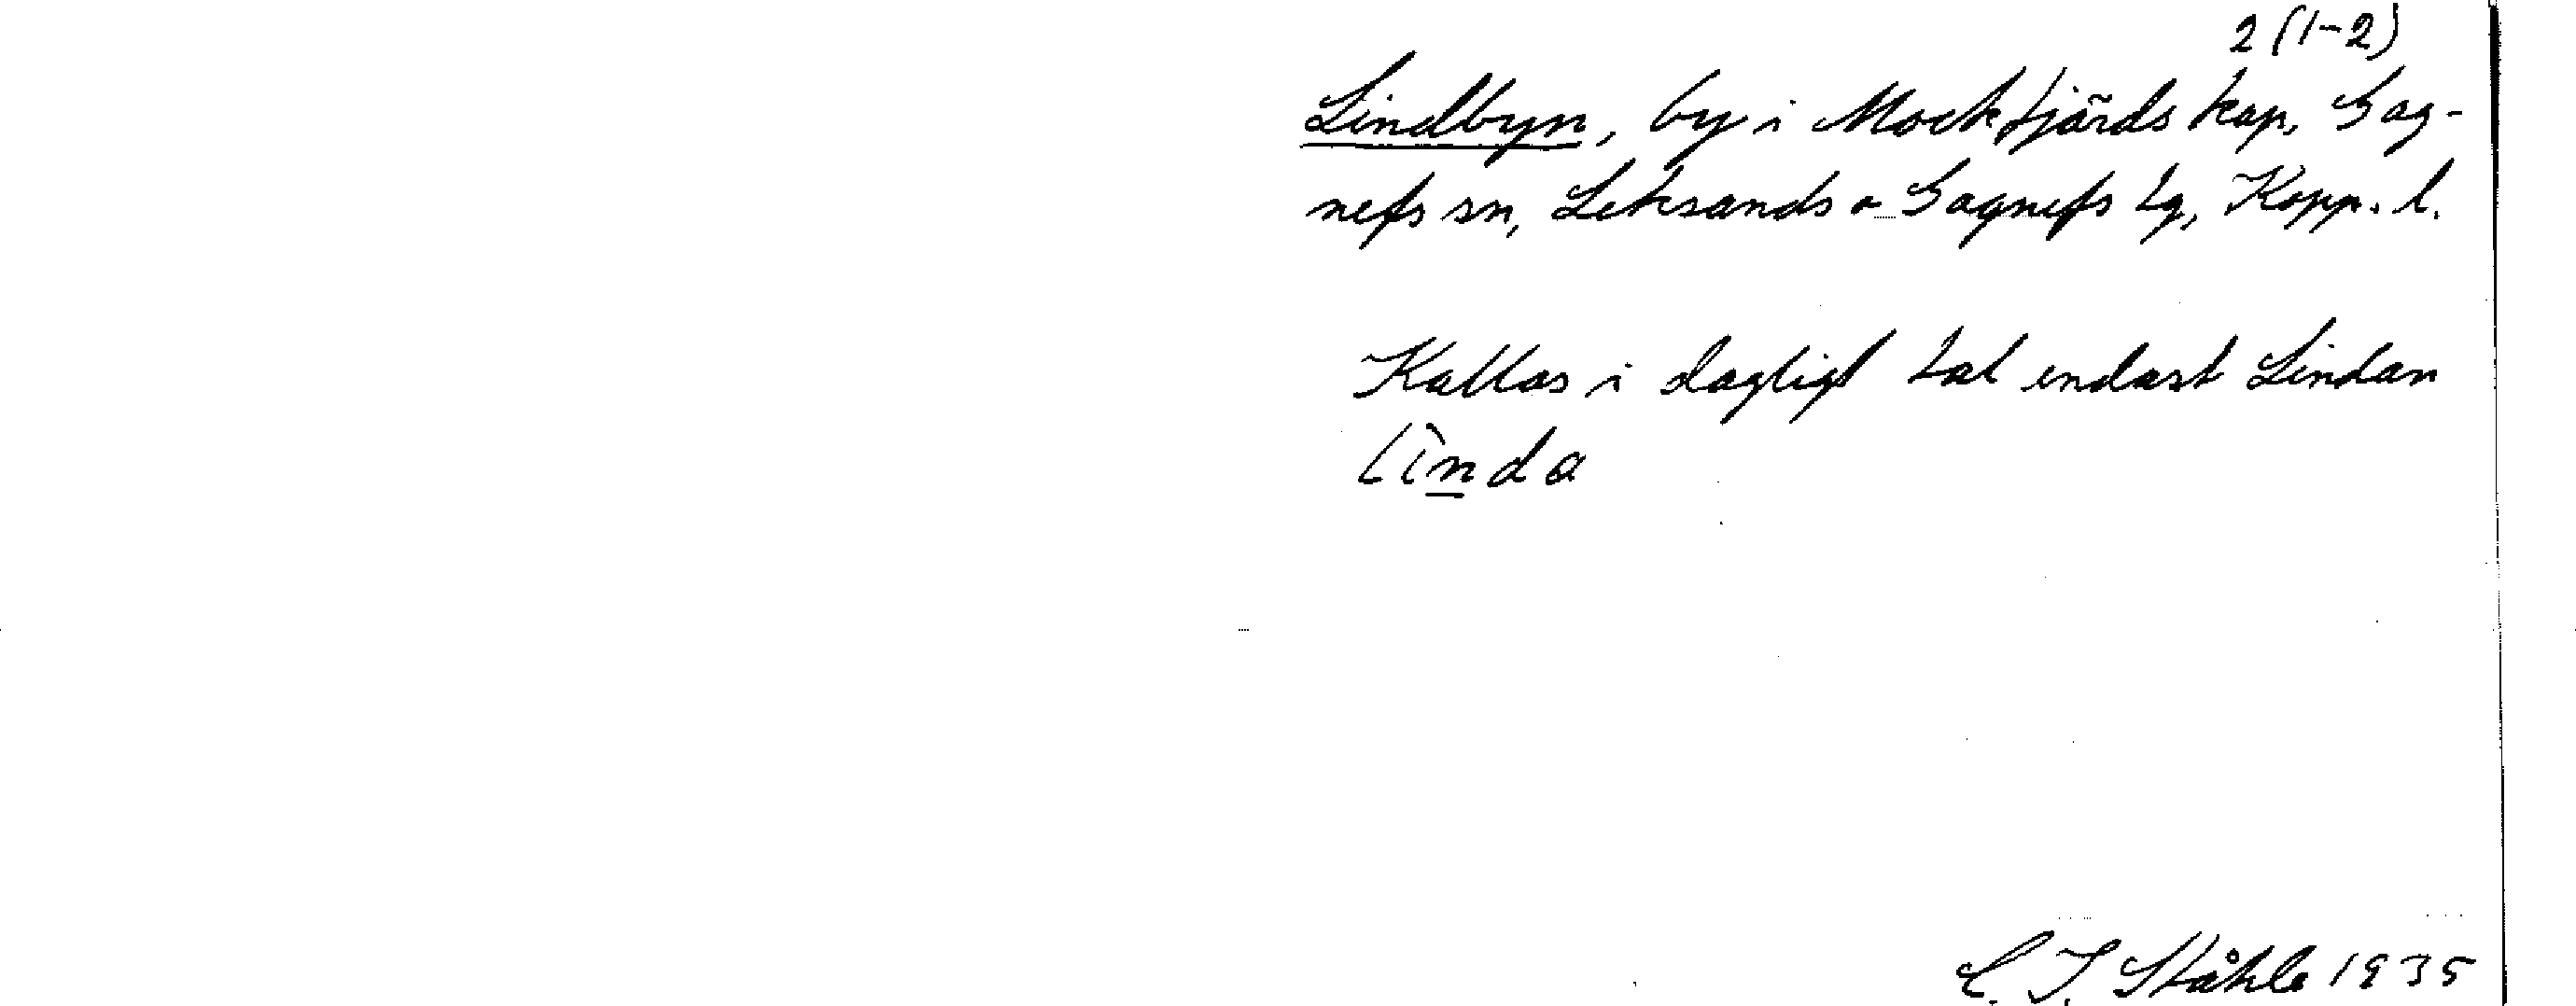 2 (1-2)
Lindbyn, by i Mockfjärds kap, Gag-
nefs sn, Leksands o Gagnefs tg, Kopp. l.
Kallas i dagligt tal endast Lindan
linda
C. I. Ståhle 1935